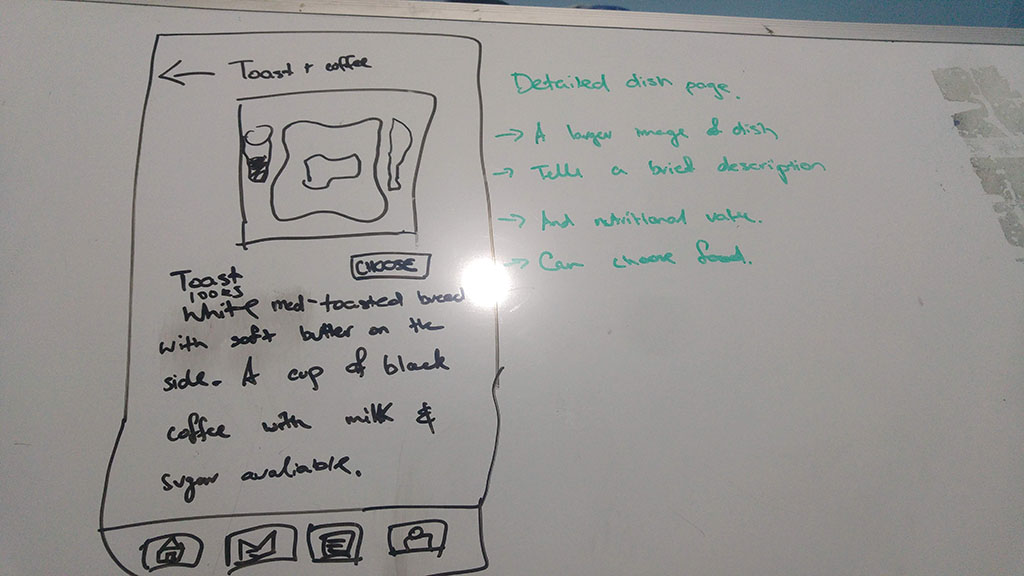 Toast + coffee
CHOOSE
Toast
White med-toasted bread
with soft butter on the
side. A cup of black
coffee with milk &
sugar avaliable.
Detailed dish page.
→ A larger image of dish
→ Tells a brief description
→ And nutritional value.
→ Can choose food.